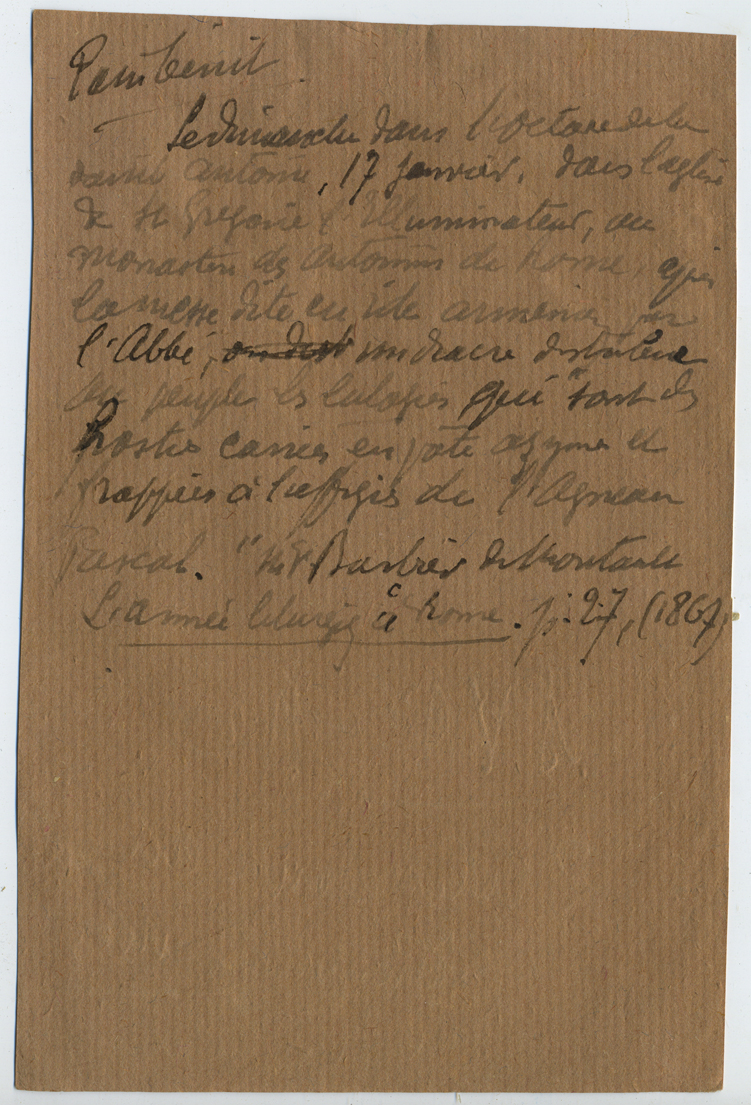 Pain bénit.
Le dimanche dans l'octave de la
saint Antoine, 17 janvier, dans l'église
de St Grégoire l'Illuminateur, au
monastère des Antonins de Rome, après
la messe dite en rite arménien par
l'Abbé, un diacre distribue
au peuple les eulogies qui "sont des
hosties carrées en pâte azyme et
frappées à l'effigie de l'Agneau
Pascal." Barbier de Montault
L'année liturgiq à Rome. p. 27, (1867)